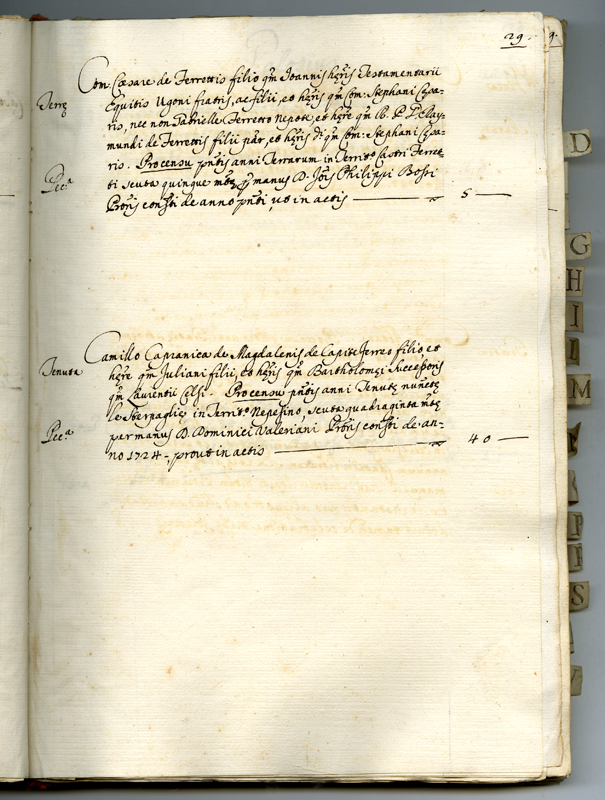 29.
9.
Com. Cæsare de Ferrettis filio qm̃ Ioannis hęris Testamentarii
Terrę
Equitis Ugoni fratris, ac filii, et hęris qm̃ Com: Stephani Cęsa-
rio, nec non Gabrielle Ferretto Nepote, et hęre qm̃ R. P. F. Ray-
mundi de Ferrettis filii par, et hęris dⁱ qm̃ Com: Stephani Cęsa-
rio. Procensu pñtis anni Terrarum in Territo Castri Ferret-
Pecᵃ
ti scuta quinque mtę p manus D. Jois Philippi Bossi
Proris consti de anno pñti, ut in actis
5
Camillo Capranica de Magdalenis de Capite ferreo filio, et
Tenuta
hęre qm̃ Juliani filii, et hęris qm̃ Bartholomęi successoris
qm̃ Laurentii Celsi - Procensu pñtis anni Tenutę nunctę
le Sterpaglie, in Territo Nepesino, scuta quadraginta mtę
Pecᵃ
per manus D. Dominici Valeriani Proris consti de an-
no 1724 -, prout in actis
40
D
G
H
I
L
M
P
S
V